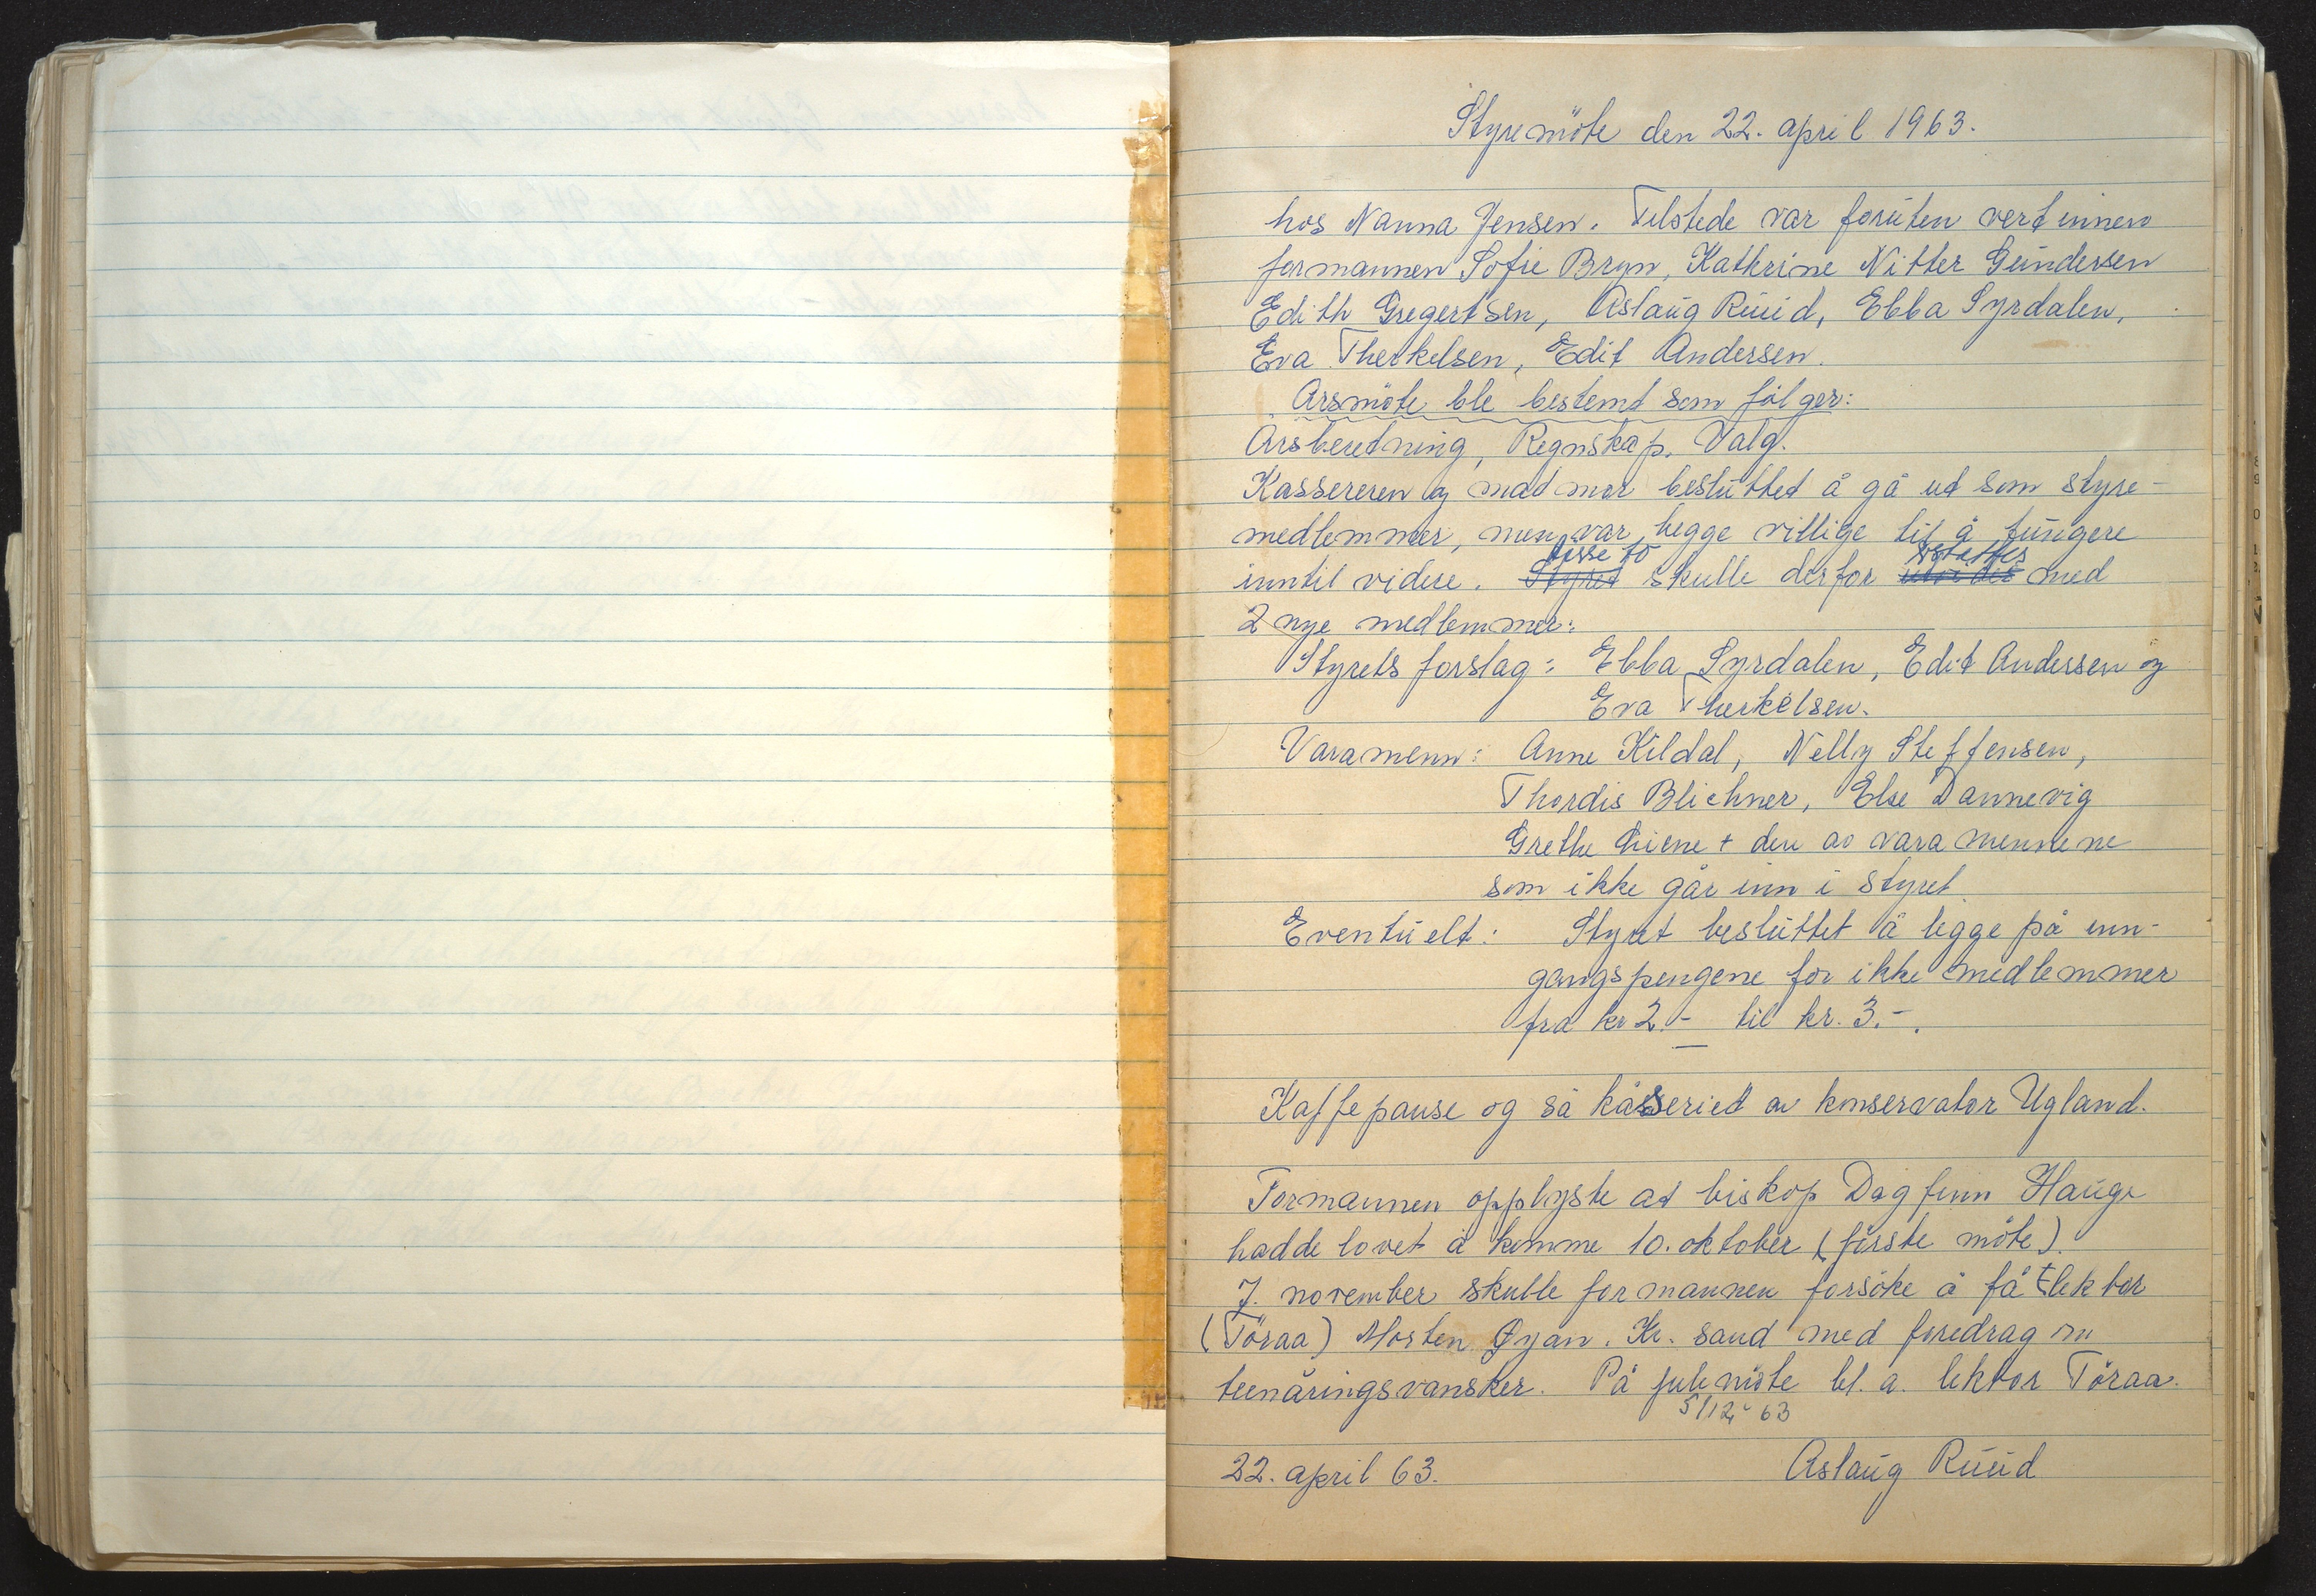 Styremöte den 22. april 1963.
hos Nanna Jensen. Tilstede var foruten vertinnen
formannen Sofie Bryn, Kathrine Nitter Gundersen
Edith Gregertsen, Aslaug Ruud, Ebba Syrdalen,
Eva Therkelsen, Edit Andersen.
Årsmöte ble bestemt som fölger:
Årsberetning, Regnskap. Valg.
Kassereren og madmor besluttet å gå ud som styre-
medlemmer, men var begge villige til å fungere
inntil videre. Styret disse to skulle derfor erstattes med
2 nye medlemmer:
Styrets forslag: Ebba Syrdalen, Edit Andersen og
Eva Therkelsen.
Varamenn: Anne Kildal, Nelly Steffensen,
Thordis Blichner, Else Dannevig
Grethe + den av varamennene
som ikke går inn i styret.
Eventuelt: Styret besluttet å legge på inn-
gangspengene for ikke medlemmer
fra kr 2.- til kr. 3.-.
Kaffepause og så kåsseriet av konservator Ugland.
Formannen opplyste at biskop Dagfinn Hauge
hadde lovet å komme 10. oktober (förste möte).
7. november skulle formannen forsöke å få lektor
(Töraa) Morten Øyan. Kr. sand med foredrag om
teenåringsvansker. På julemöte bl. a. lektor Töraa.
5/12 63
22. april 63. Aslaug Ruud